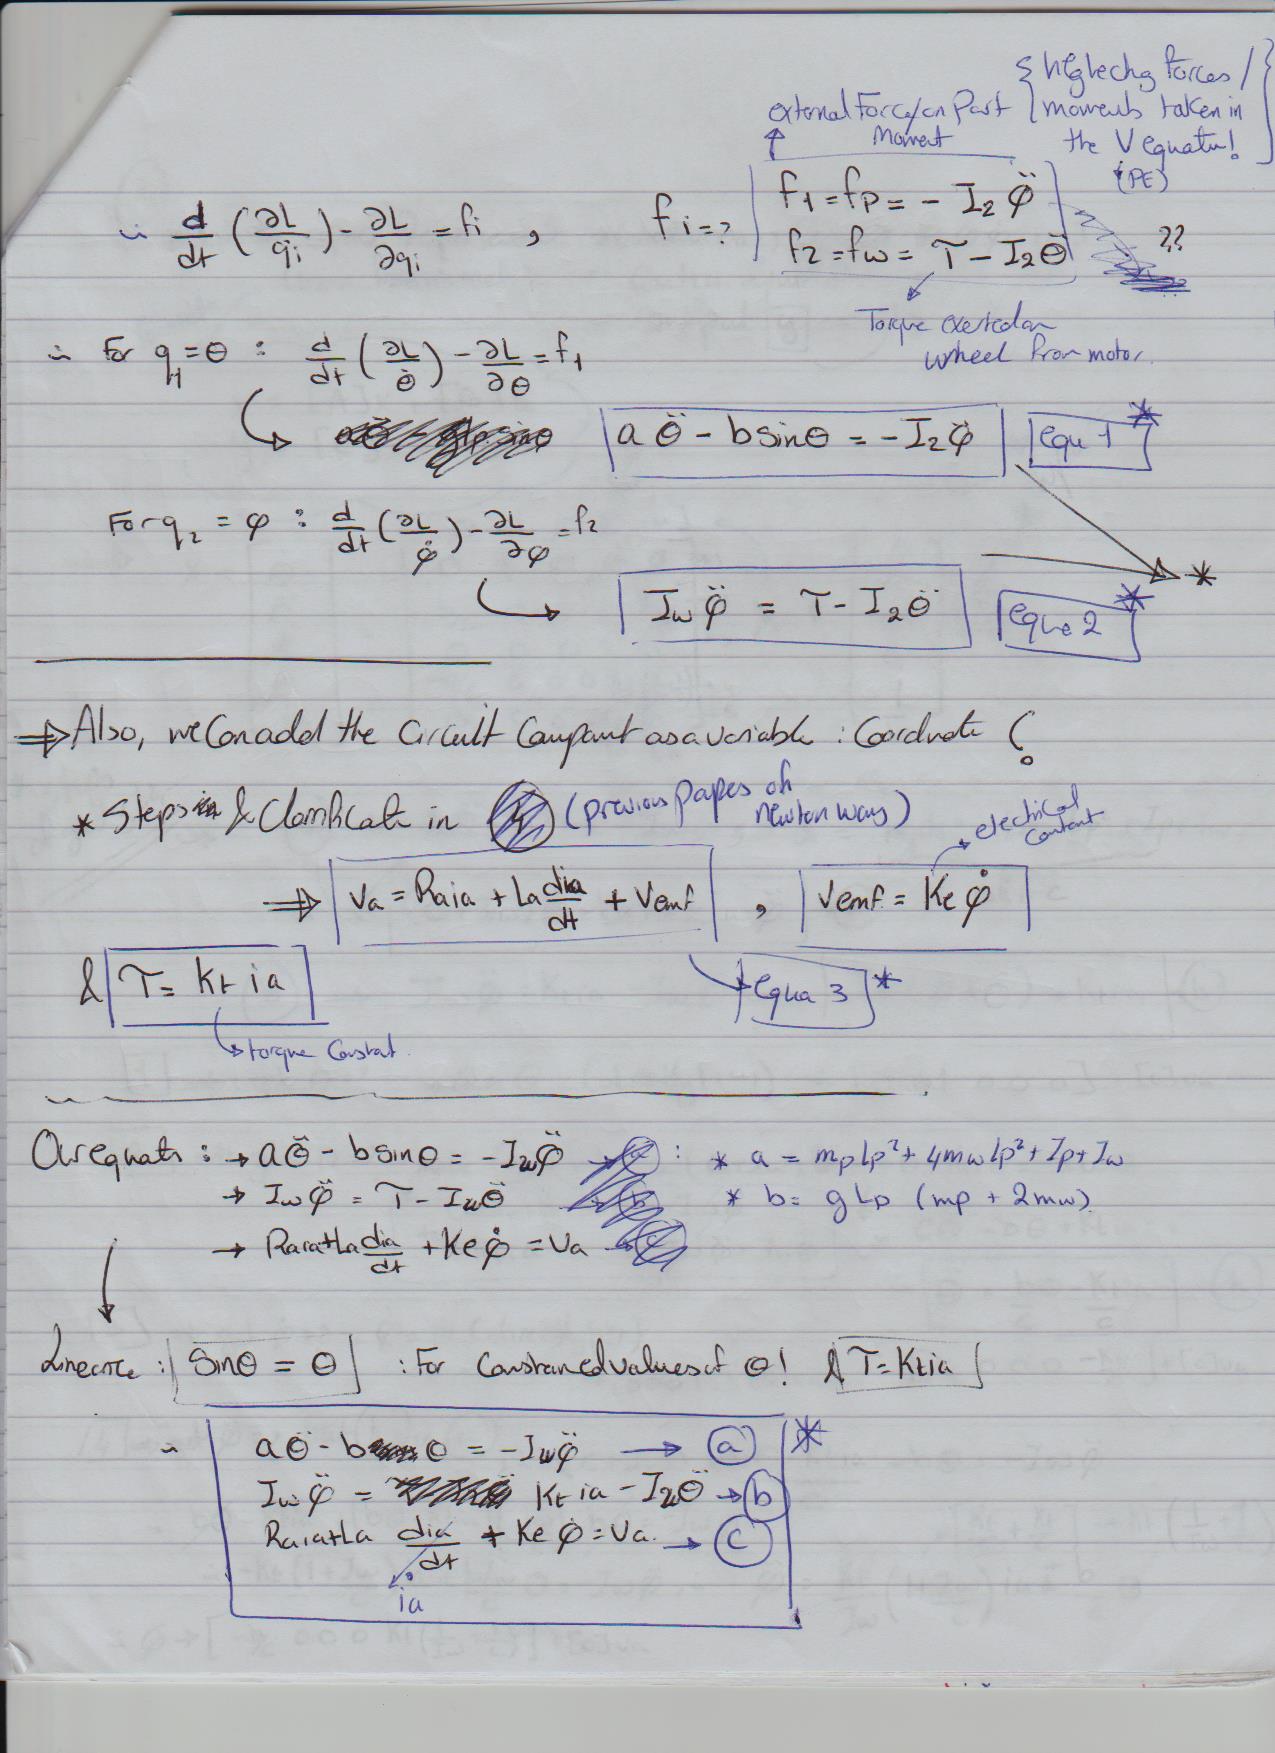 { neglecting Forces/
external Force/on Part moments taken in
Moment the V equation! }
(PE)
∴ d/dt (∂L/q̇i) - ∂L/∂qi = fi , fi = ? f1 = fp = - I2 φ̈
f2 = fw = T - I2 θ̈ ??
Torque exerted on
wheel from motor.
∴ For q1 = θ : d/dt (∂L/θ̇) - ∂L/∂θ = f1
a θ̈ - b sinθ = - I2 φ̈ equ 1 *
For q2 = φ : d/dt (∂L/φ̇) - ∂L/∂φ = f2
*
Iw φ̈ = T - I2 θ̈ eque 2 *
⇒ Also, we Can add the Circuit Component as a variable : Coordinate ?
* Steps & Clarificate in 4 (previous papes oh
newton way)
electrical
constant
⇒ Va = Raia + La dia/dt + Vemf , Vemf = Ke φ̇
& T = Kt ia equa 3 *
torque Constat.
Our equats : → a θ̈ - b sinθ = - Iw φ̈ → a : * a = mp lp² + 4mw lp² + Ip + Iw
→ Iw φ̈ = T - Iw θ̈ → b * b = g Lp (mp + 2mw)
→ Raia+La dia/dt + Ke φ̇ = Va → c
Linearize : sinθ = θ : For Constrained values of θ! & T = Kt ia
∴ a θ̈ - b θ = - Iw φ̈ → a *
Iw φ̈ = Kt ia - Iw θ̈ → b
Raia+La dia/dt + Ke φ̇ = Va. → c
i̇a